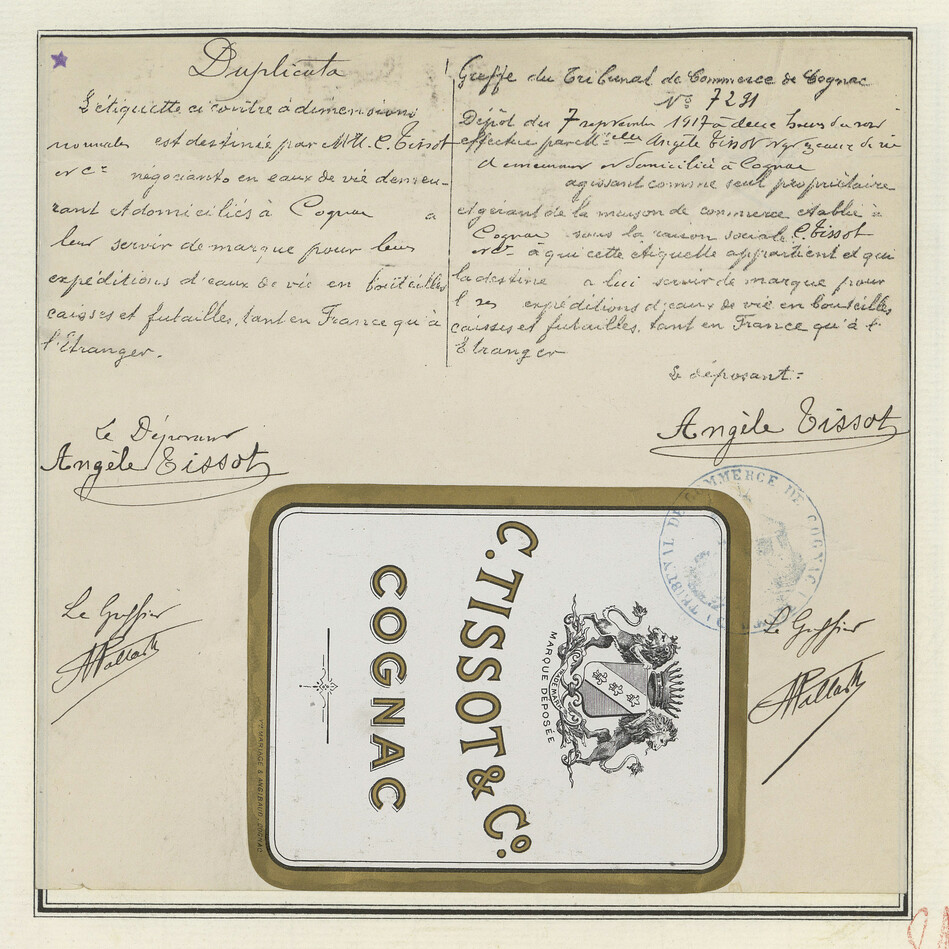 Duplicata
L'étiquette ci contre à dimensions
normales est destinée par MM. C. Tissot
et Cie négociants en eaux de vie demeu-
rant et domiciliés à Cognac a
leur servir de marque pour leurs
expéditions d'eaux de vie en bouteilles
caisses et futailles, tant en France qu'à
l'Etranger.
Le Déposant
Angèle Tissot
Le Greffier
Greffe du Tribunal de Commerce de Cognac
No 7291
Dépôt du 7 septembre 1917 à deux heures du soir
effectué par Melle Angèle Tissot Nég eaux de vie
demeurant et domiciliée à Cognac
agissant comme seul propriétaire
et gérant de la maison de commerce établie à
Cognac sous la raison sociale C. Tissot
et Cie à qui cette étiquette appartient et qui
la destine a lui servir de marque pour
ses expéditions d'eaux de vie en bouteilles
caisses et futailles, tant en France qu'à l'
Etranger
Le déposant:
Angèle Tissot
TRIBUNAL DE COMMERCE DE COGNAC
Le Greffier
MARQUE DÉPOSÉE
C. TISSOT & Co.
COGNAC
MARIAGE & ANGIBAUD, COGNAC